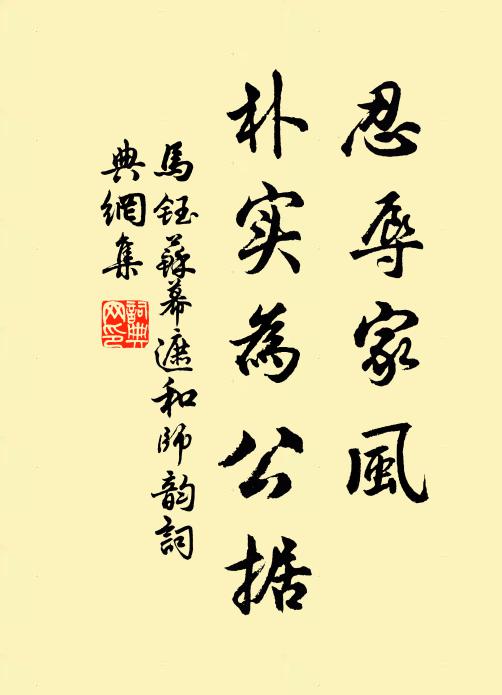 忍辱家風
朴实為公据
馬鈺蘇幕遮和師韵詞
典網集
詞典
网印